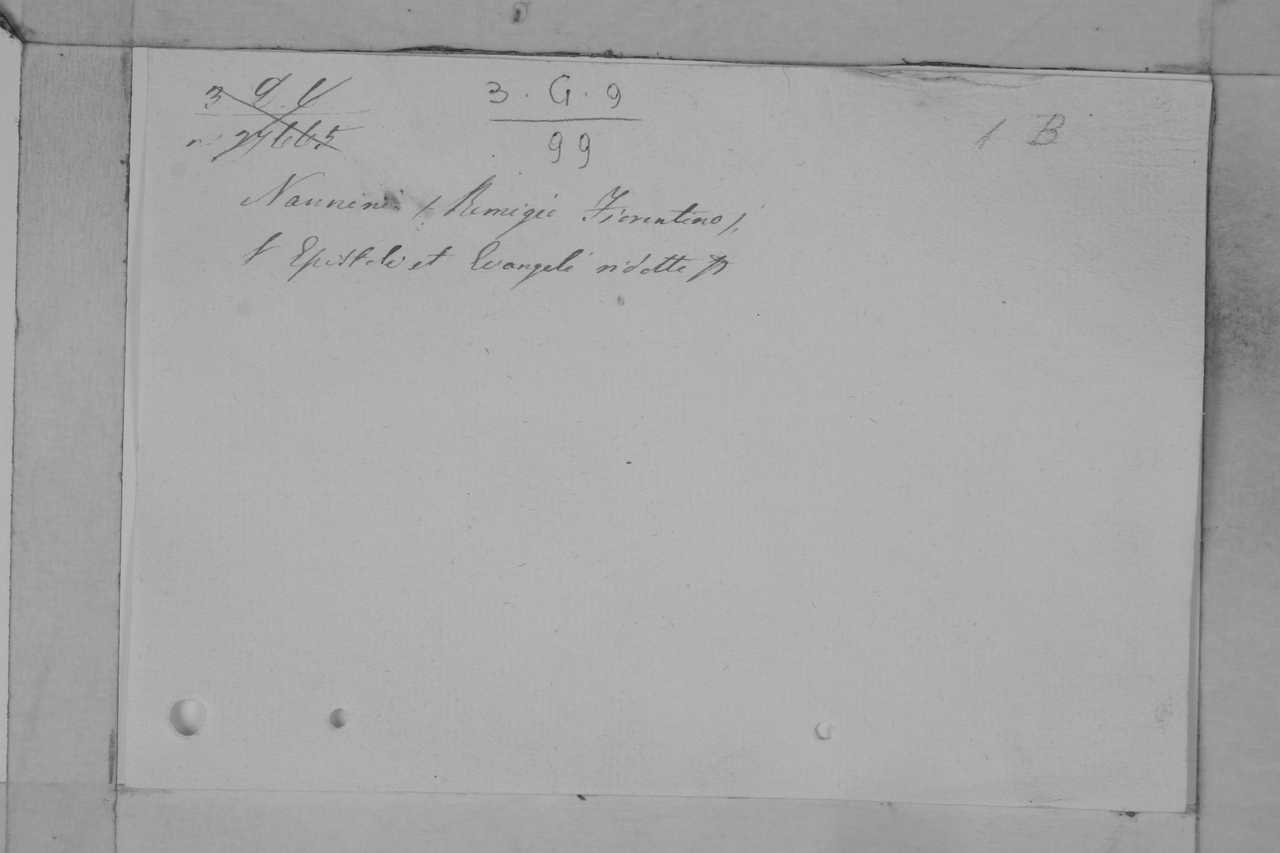 3 . G . 9
99
1 B
Nannini (Remigio Fiorentino)
Epistole et Evangeli ridotte